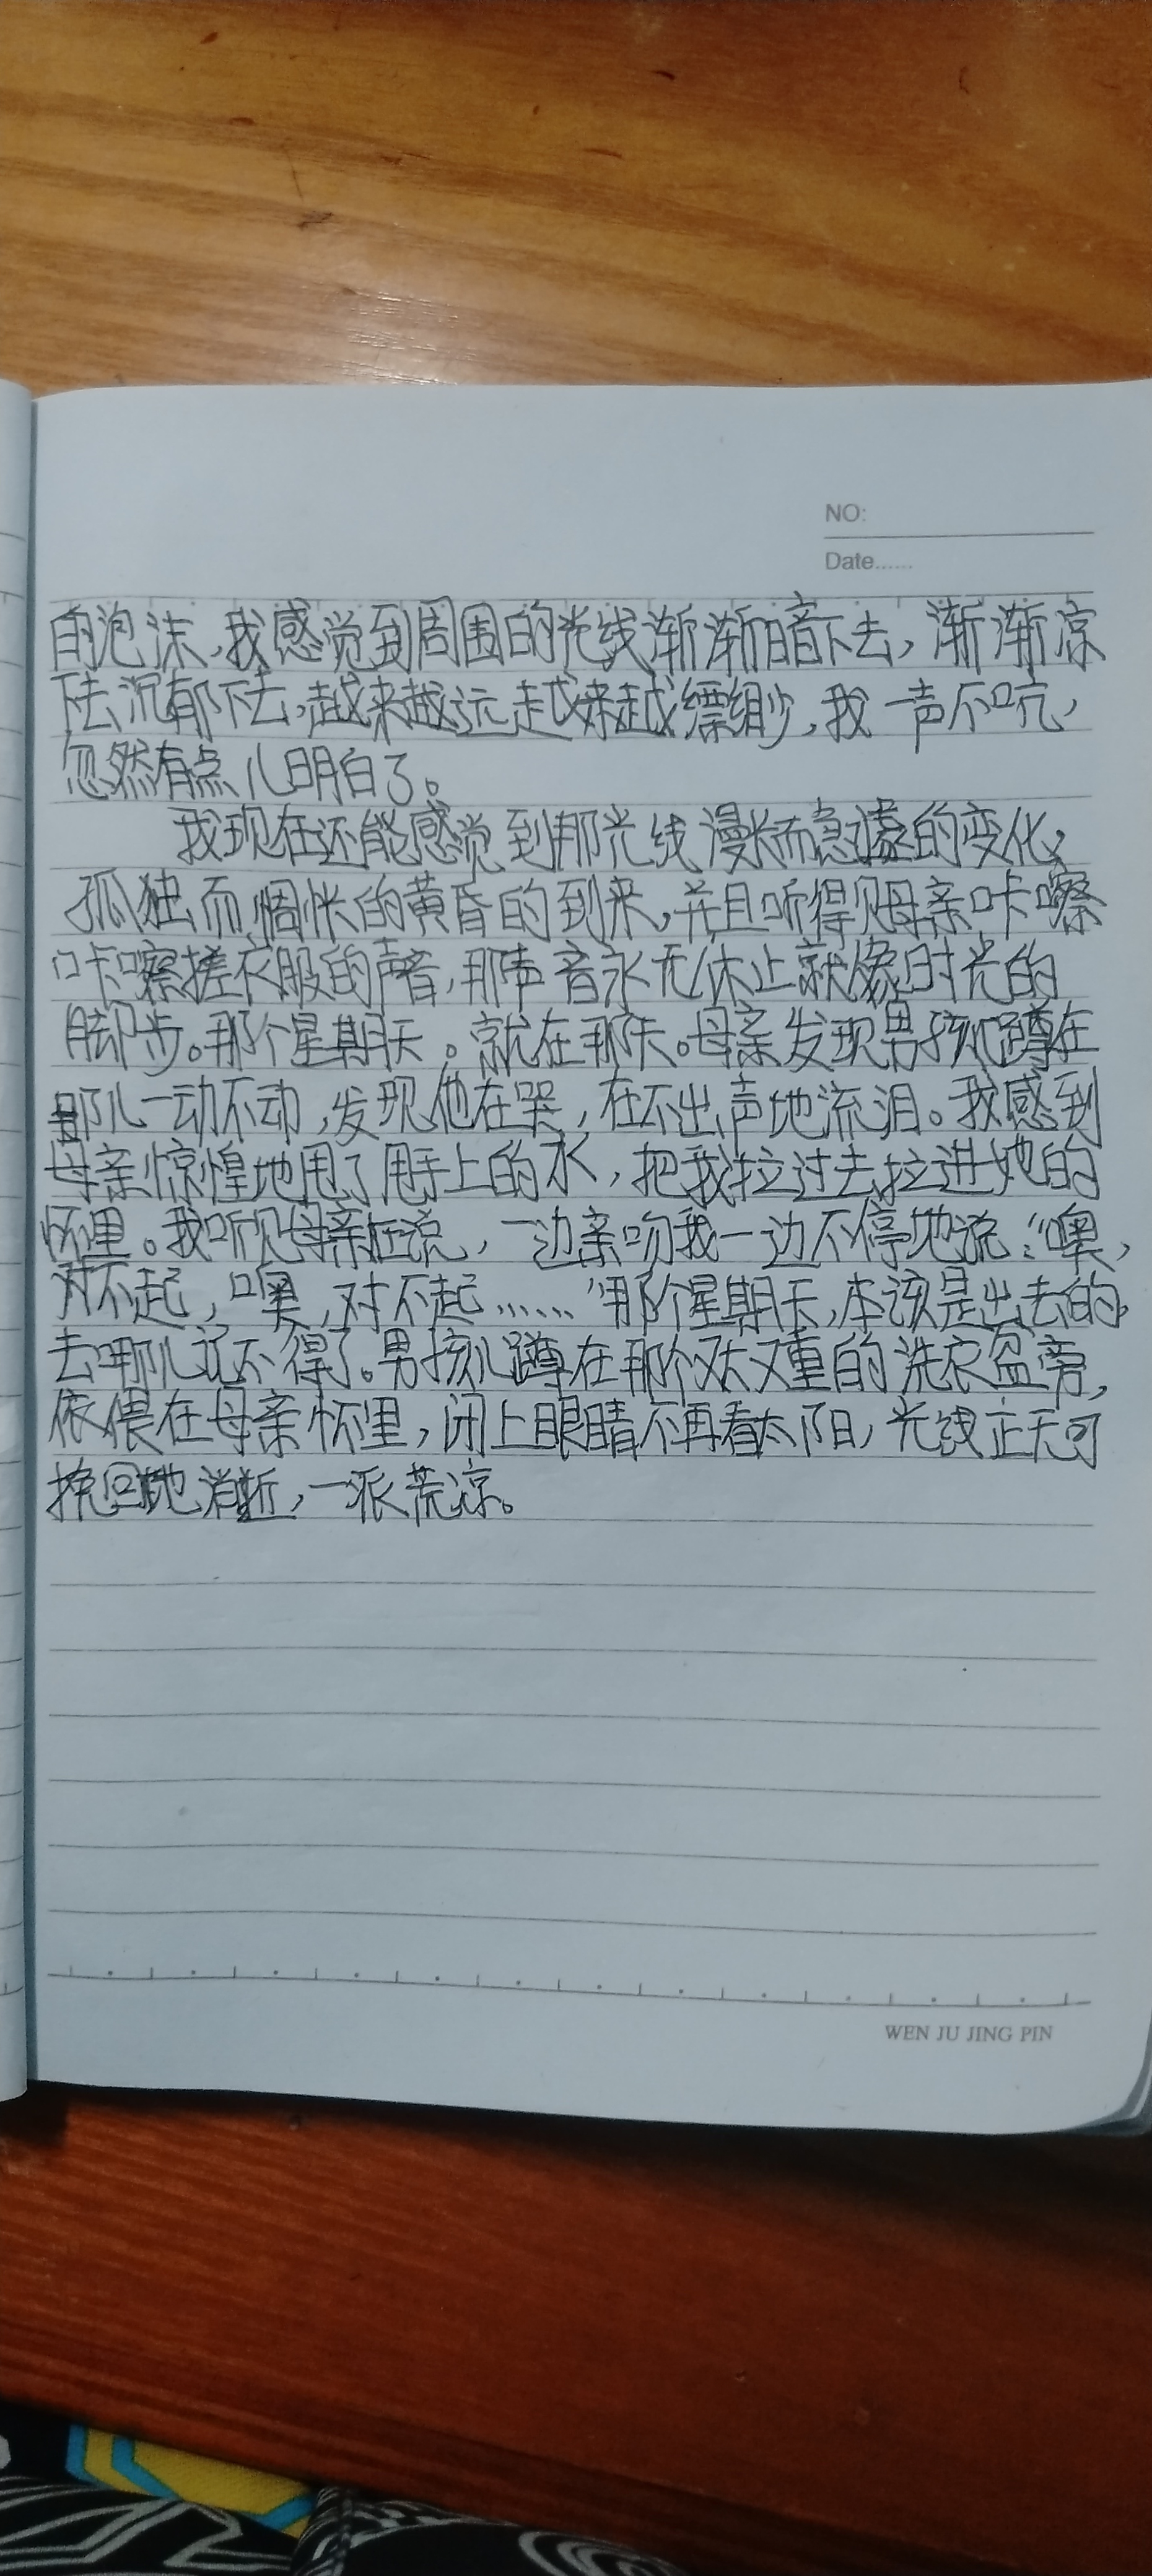 NO:
Date......
的泡沫,我感觉到周围的光线渐渐暗下去,渐渐凉
下去沉郁下去,越来越远越来越缥缈,我一声不吭,
忽然有点儿明白了。
我现在还能感觉到那光线漫长而急遽的变化,
孤独而惆怅的黄昏的到来,并且听得见母亲咔嚓
咔嚓搓衣服的声音,那声音永无休止就像时光的
脚步。那个星期天。就在那天。母亲发现男孩儿蹲在
那儿一动不动,发现他在哭,在不出声地流泪。我感到
母亲惊惶地甩了甩手上的水,把我拉过去拉进她的
怀里。我听见母亲在说,一边亲吻我一边不停地说:“噢,
对不起,噢,对不起……”那个星期天,本该是出去的,
去哪儿记不得了。男孩儿蹲在那个又大又重的洗衣盆旁,
依偎在母亲怀里,闭上眼睛不再看太阳,光线正无可
挽回地消逝,一派荒凉。
WEN JU JING PIN